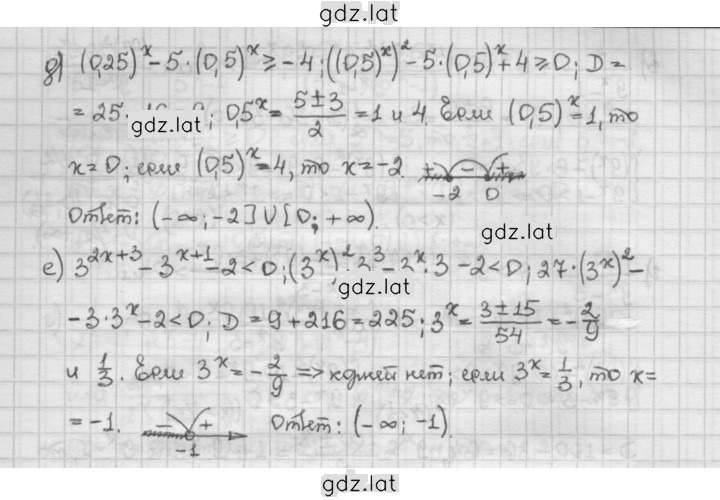 gdz.lat
д) (0,25)^x - 5·(0,5)^x ≥ -4; ((0,5)^x)^2 - 5·(0,5)^x + 4 ≥ 0; D =
= 25 - 16 = 9; 0,5^x = (5±3)/2 = 1 и 4. Если (0,5)^x = 1, то
gdz.lat
x = 0; если (0,5)^x = 4, то x = -2. + - + -2 0
Ответ: (-∞; -2] U [0; +∞).
gdz.lat
е) 3^(2x+3) - 3^(x+1) - 2 < 0; (3^x)^2 · 3^3 - 3^x · 3 - 2 < 0; 27·(3^x)^2 -
gdz.lat
- 3·3^x - 2 < 0; D = 9 + 216 = 225; 3^x = (3±15)/54 = -2/9
и 1/3. Если 3^x = -2/9 ⇒ корней нет; если 3^x = 1/3, то x =
= -1. - + -1 Ответ: (-∞; -1).
gdz.lat